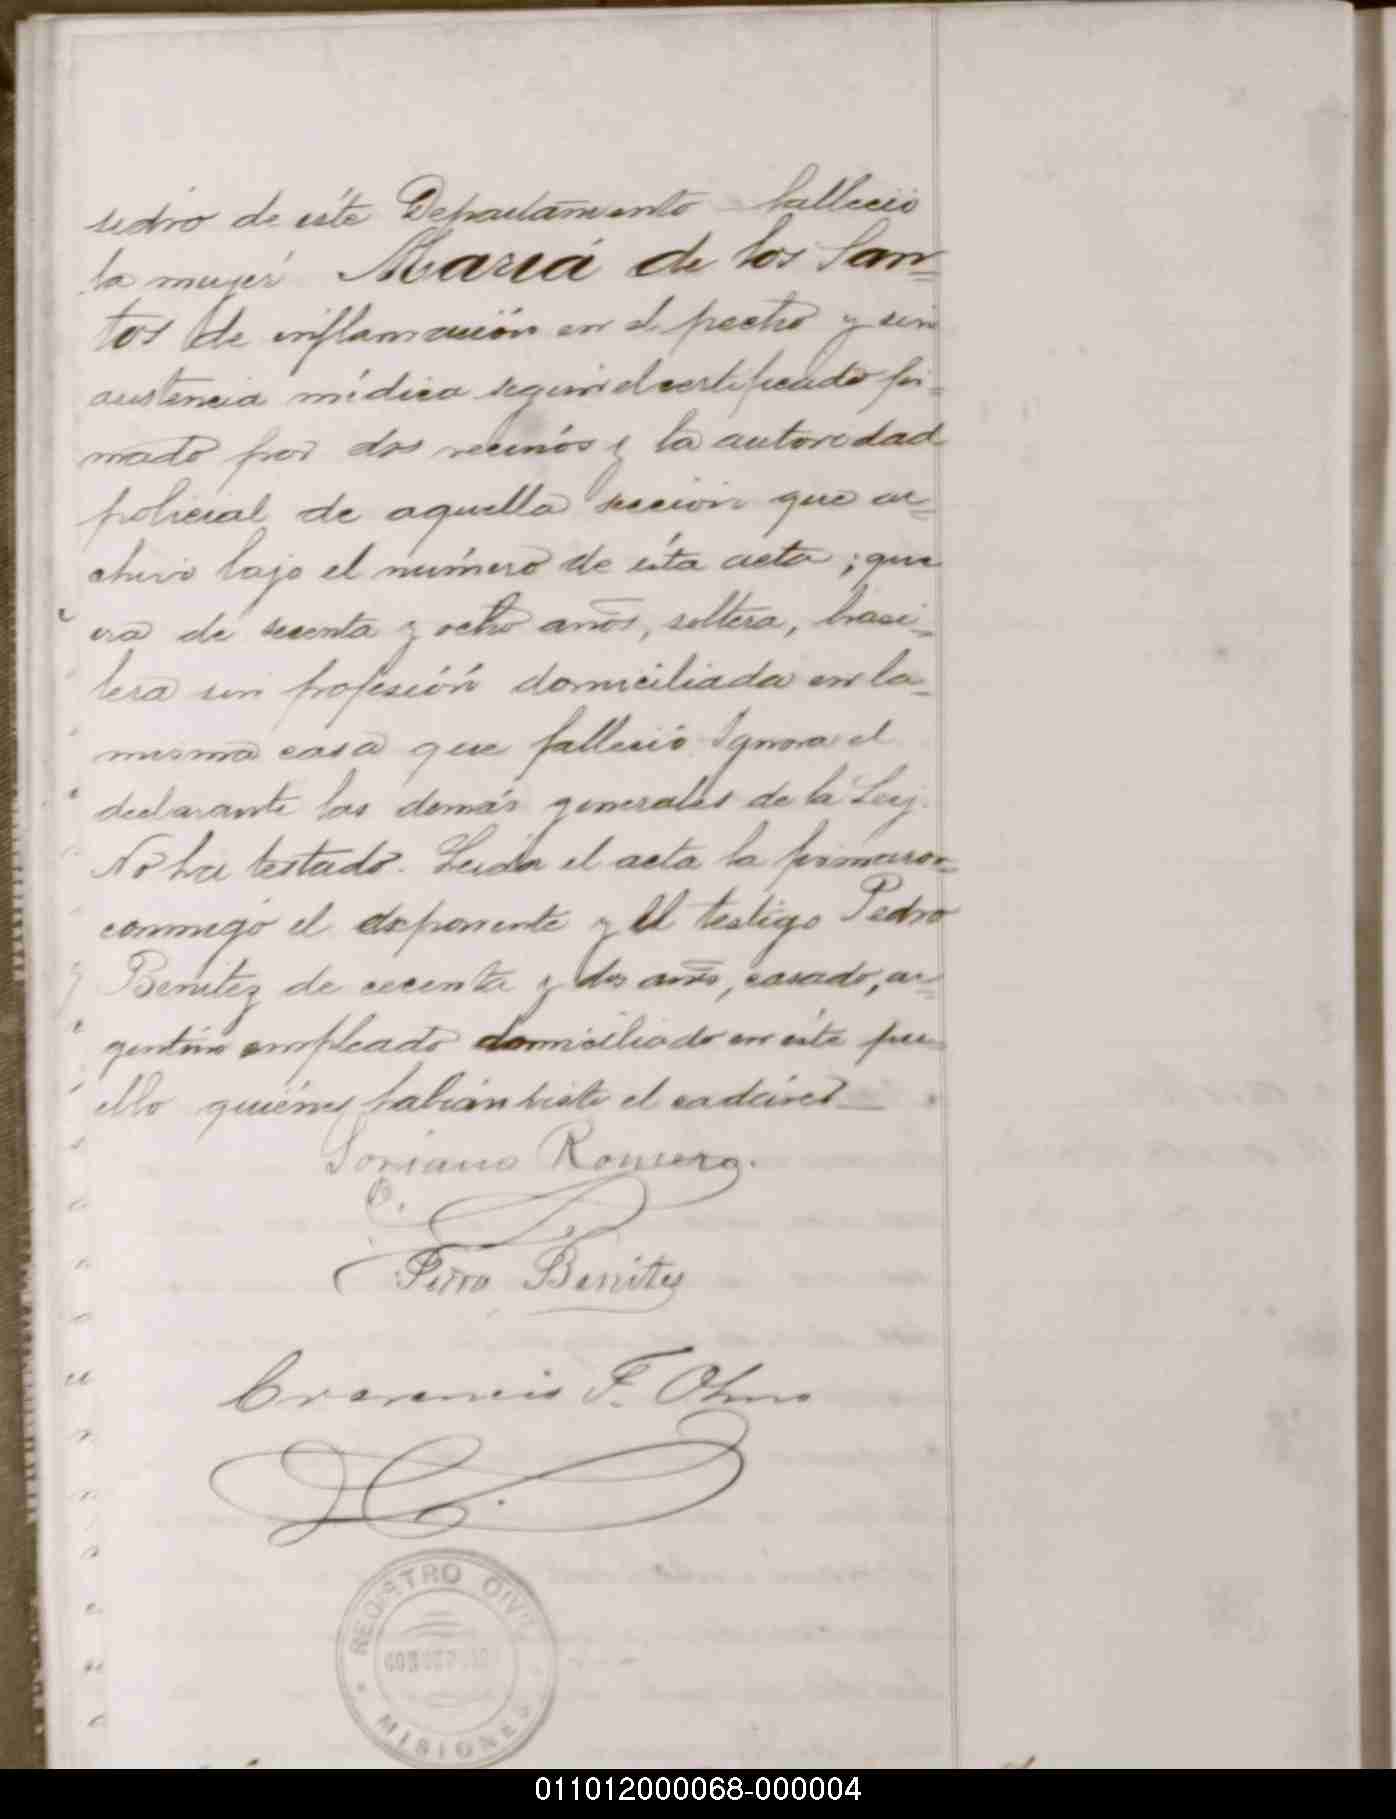 sidro de éste Departamento falleció
la mujér María de los San=
tos de inflamación en el pecho y sin
asistencia médica segun el certificado fir=
mado por dos vecinós y la autoridad
policial de aquella sección que ar=
chivo bajo el número de ésta acta; que
era de secenta y ocho años, soltera, brasi=
lera sin profesión domiciliada en la=
misma casa que falleció. Ignora el
declarante las demás generales de la Ley.
No ha testado. Leida el acta la firmaron=
conmigo el exponente y el testigo Pedro
Benitez de cecenta y dos años, casado, ar=
gentino empleado domiciliado en éste pue=
blo quiénes habián visto el cadáver
Soriano Romero.
Pedro Benites
F. Olmo
REGISTRO CIVIL
MISIONES
011012000068-000004